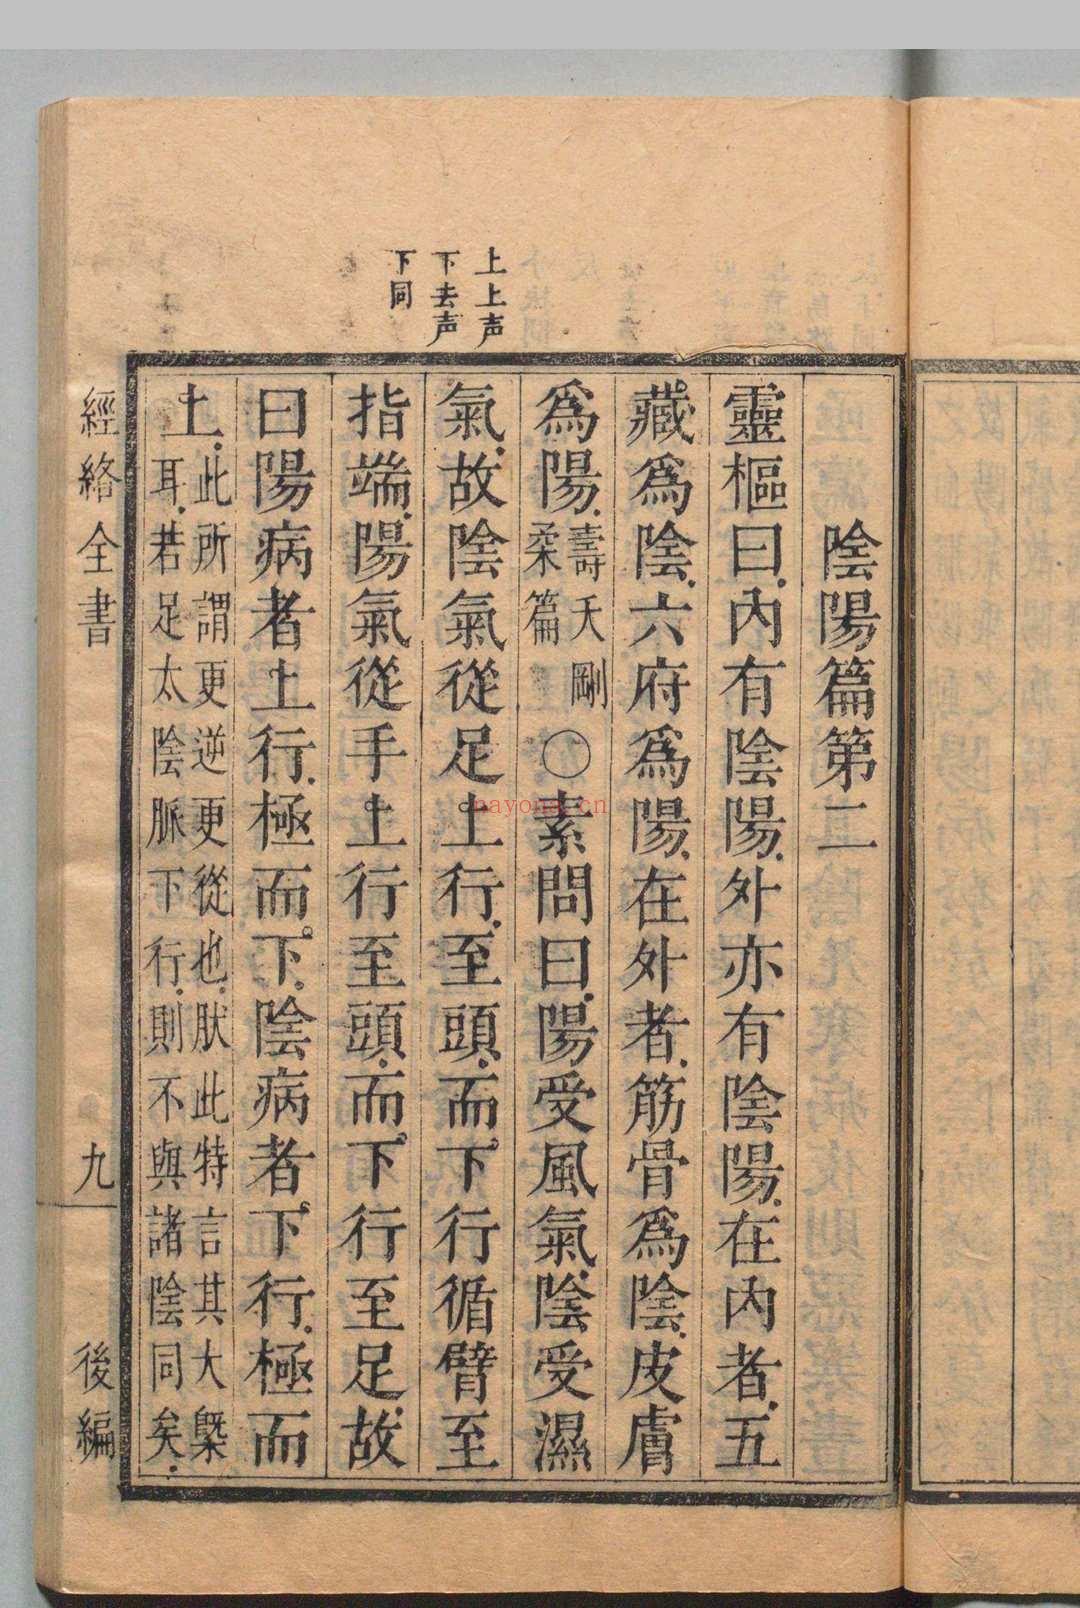 上上声
下去声
下同
陰陽篇第二
靈樞曰内有陰陽外亦有陰陽在内者五
藏爲陰六府爲陽在外者筋骨爲陰皮膚
爲陽壽夭剛柔篇〇素問曰陽受風氣陰受濕
氣故陰氣從足上行至頭而下行循臂至
指端陽氣從手上行至頭而下行至足故
曰陽病者上行極而下陰病者下行極而
上此所謂更逆更從也肰此特言其大槩
耳若足太陰脈下行則不與諸陰同矣
經絡全書
九
後編
nayona.cn